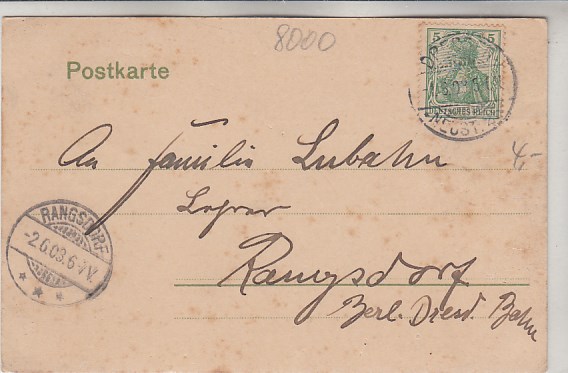 8000
5 5
DEUTSCHES REICH
DRESDEN
NEUST.
Postkarte
An Familie Lubahn
4,-
Lehrer
RANGSDORF
-2.6.03.6-7V.
Rangsdorf
Berl. Dresd. Bahn